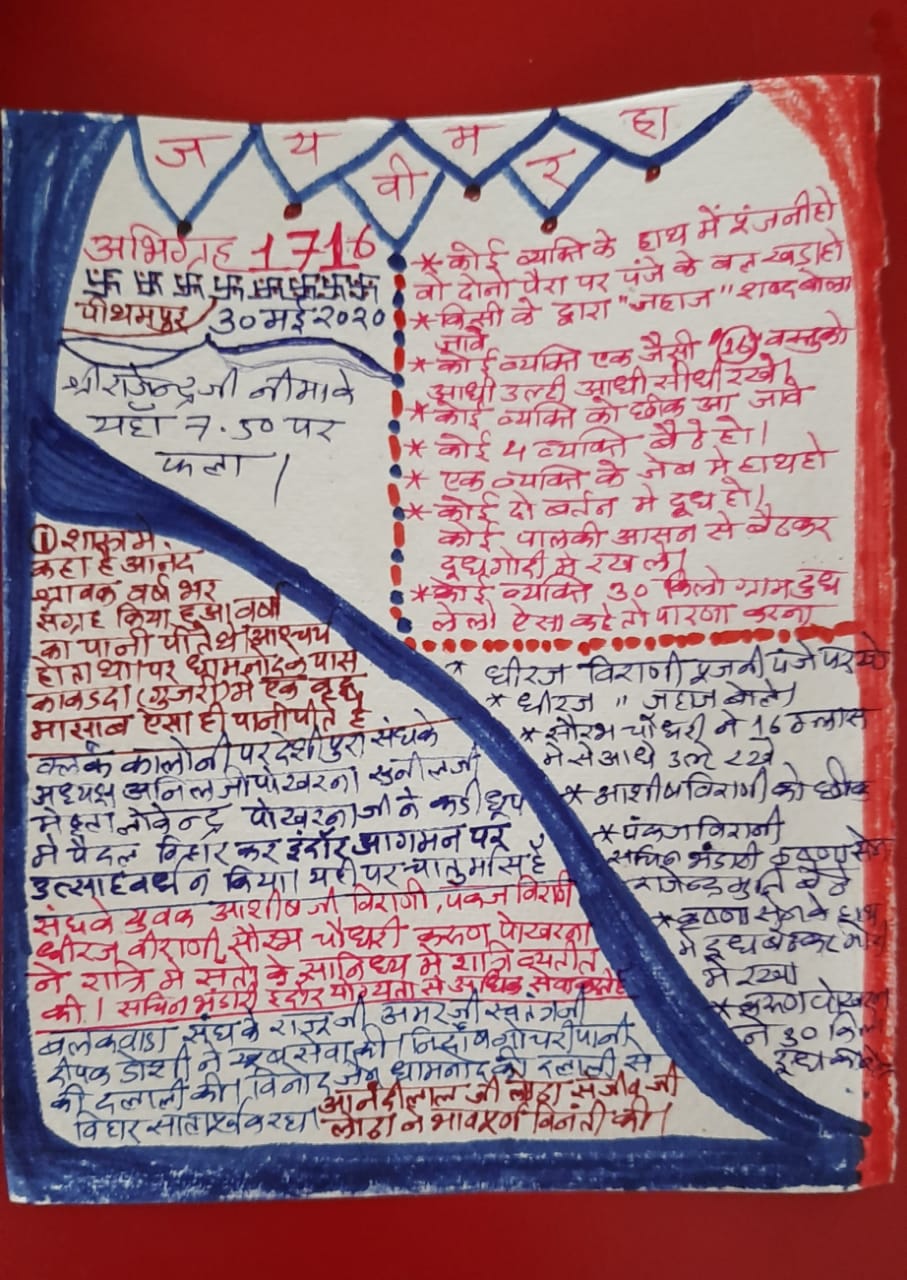 ज य म हा
वी र
अभिग्रह 1716
卐 卐 卐 卐 卐 卐 卐 卐
पीथमपुर 30 मई 2020
श्री राजेन्द्र जी नीमा के
यहाँ 7.50 पर
फला।
* कोई व्यक्ति के हाथ में रंजनी हो
वो दोनो पैरा पर पंजे के बल खडा हो
* किसी के द्वारा "जहाज" शब्द बोला
जावे
* कोई व्यक्ति एक जैसी (16) वस्तु को
आधी उल्टी आधी सीधी रखे।
* कोई व्यक्ति को छीक आ जावे
* कोई 4 व्यक्ति बैठे हो।
* एक व्यक्ति के जेब मे हाथ हो
* कोई दो बर्तन मे दूध हो।
कोई पालकी आसन से बैठकर
दूध गोदी मे रख ले।
* कोई व्यक्ति 30 किलो ग्राम दुध
ले लो ऐसा कहे तो पारणा करना
① शास्त्र मे
कहा है आनंद
श्रावक वर्ष भर
संग्रह किया हुआ वर्षा
का पानी पीते थे आश्चर्य
होता था। पर धामनोद के पास
काकडदा (गुजरी) मे एक वृद्ध
मासाब ऐसा ही पानी पीते है
क्लर्क कालोनी परदेशीपुरा संघ के
अध्यक्ष अनिल जी पोखरना सुनील जी
मेहता लोकेन्द्र पोखरना जी ने कडी धूप
मे पैदल विहार कर इंदौर आगमन पर
उत्साहवर्धन किया। यही पर चातुर्मास है
संघ के युवक आशीष जी विराणी, पंकज विराणी
धीरज वीराणी, सौरभ चौधरी करुण पोखरना
ने रात्रि मे संतो के सानिध्य मे रात्रि व्यतीत
की। सचिन भंडारी इंदौर योग्यता से अधिक सेवा करते है
बलकवाडा संघ के राजू जी अमर जी स्वतंत्र जी
दीपक डोशी ने खूब सेवा की। निर्दोष गोचरी पानी
की दलाली की। विनोद जैन धामनोद की दलाली से
विहार साता पूर्वक रहा। आनंदीलाल जी लोढा संजीव जी
लोढा ने भावपूर्ण विनंती की।
* धीरज विराणी रंजनी पंजे पर
* धीरज " जहाज बोले।
* सौरभ चौधरी ने 16 ग्लास
मे से आधे उल्टे रखे
* आशीष विराणी को छीक
* पंकज विरानी
सचिन भंडारी कृष्णा सेन
राजेन्द्र मुनि बैठे
* कृष्णा सेन के हाथ
मे दूध बैठकर गोदी
मे रखा
* करुण पोखरना
ने 30 किलो
दूध